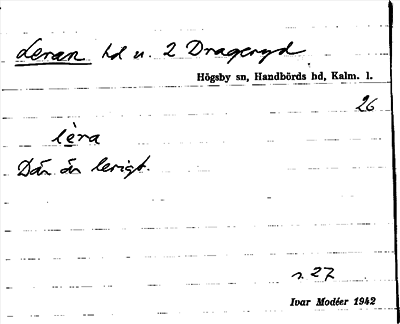 Leran hd u. 2 Drageryd
Högsby sn, Handbörds hd, Kalm. l.
26
lèra
Där är lerigt.
s. 27
Ivar Modéer 1942